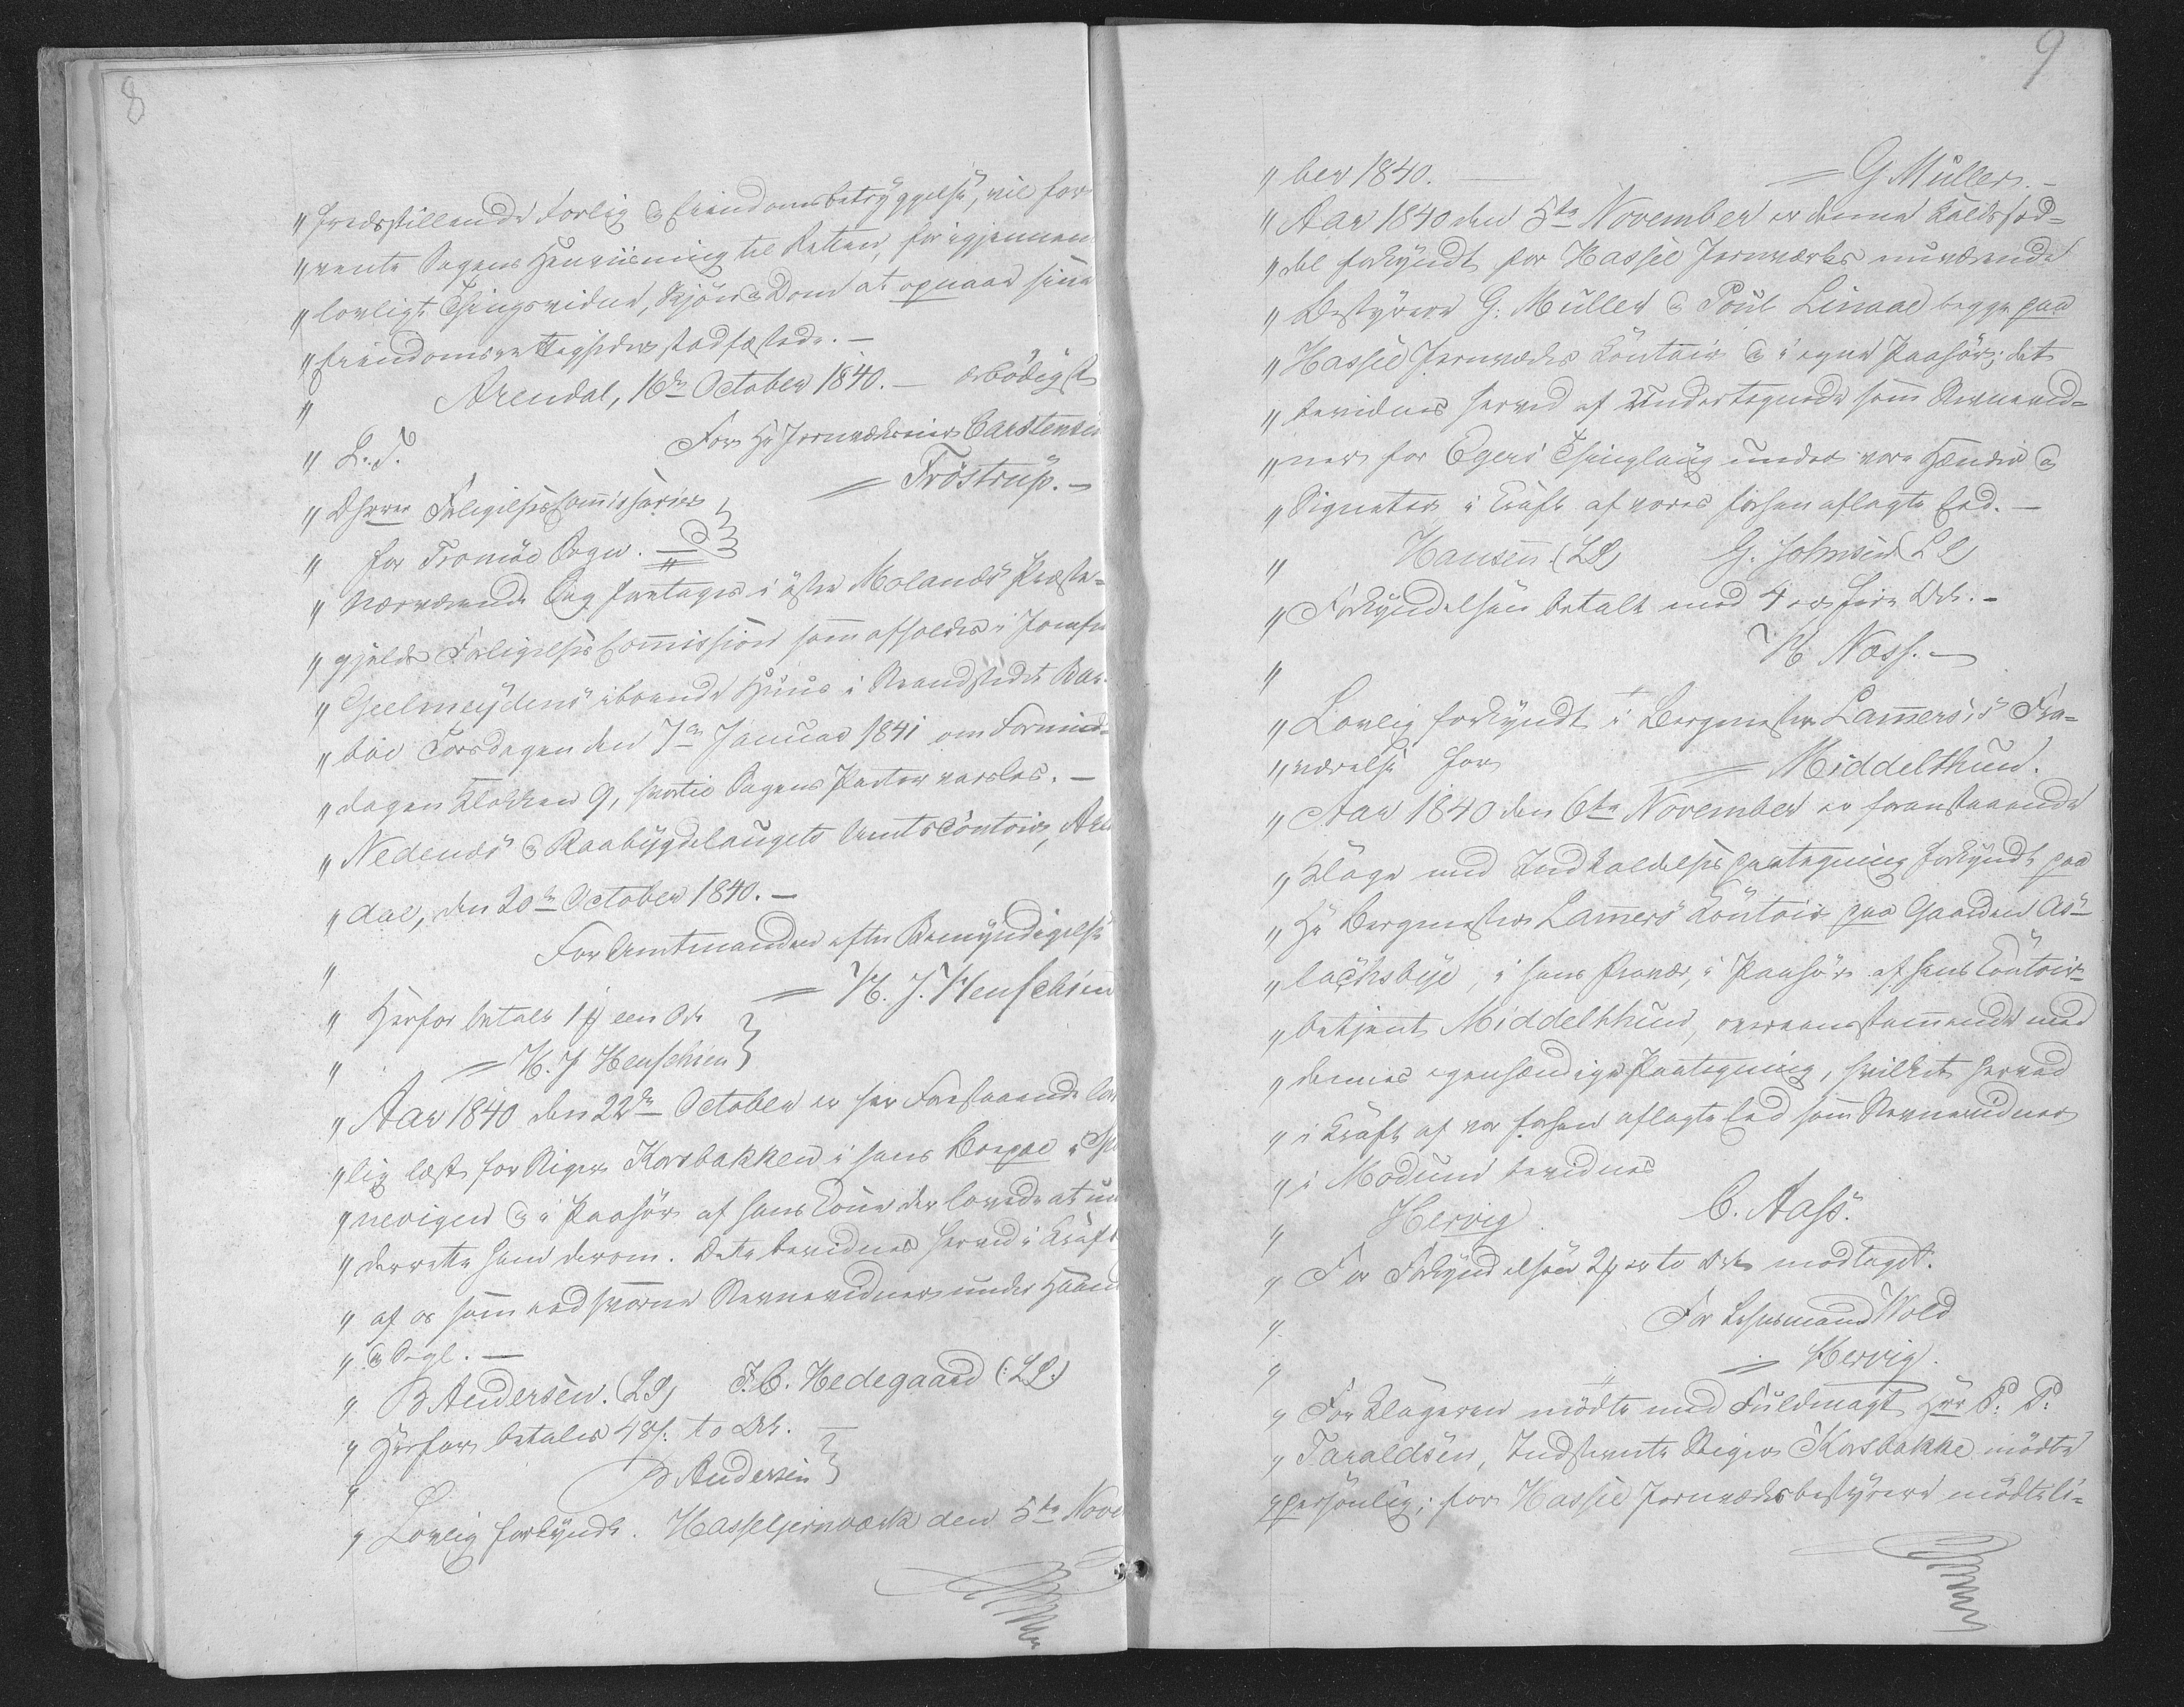 8
" fredsstillende Forlig & Eiendomsbetryggelse, vil for-
" vente Sagens Henviisning til Retten, for igjennem
" lovligt Thingsvidne, Skjön & Dom at opnaae sine
" Eiendomsrettigheder stadfæstede. —
" Arendal, 16de October 1840. — ærbödigst
" S. T. For Hr Jernværkseier Carstensen
" DHerrer Forligelsescommissairer = Fröstrup. —
" for Tromöe Sogn.
" Nærværende Sag foretages i östre Molands Præste-
" gjelds Forligelses Commission som afholdes i Jomfru
" Geelmeÿdens iboende Huus i Strandstedet Bar-
" böe Torsdagen den 7de Januar 1841 om Formid-
" dagen Klokken 9, hvortil Sagens Parter varsles. —
" Nedenæs & Raabÿgdelaugets Amtscontoir, Aren
" dal, den 20de October 1840. —
" For Amtmanden efter Bemÿndigelse
= H. J. Henschien
" Herfor betalt 1 # een Ort
" = H. J Henschien
" Aar 1840 den 22de October er her Forestaaende lov
" lig læst for Stiger Korsbakken i hans Boepæl i
" nevigen & i Paahör af hans Kone der lovede at un
" derrette ham derom. Dette bevidnes herved i Kraft
" af os som eedsvorne Stevnevidner under Haand
" & Segl. —
" B Andersen. (LS) F. C. Hedegaard (:LS:)
" Herfor betales 48 s. to Ort.
" B Andersen
" Lovlig forkÿndt. Hasseljernværk den 5te Novem
9
" ber 1840. — = G Müller. —
" Aar 1840 den 5te November er denne Kaldssed-
" del forkÿndt for Hassel Jernværks nuværende
" Bestÿrere G. Müller & Poul Linaae begge paa
" Hassel Jernværks Contoir & i egne Paahör; det
" bevidnes herved af Undertegnede som Stevnevid-
" ner for Egers Thinglaug under vore Hænder &
" Signeter i Kraft af vores forhen aflagte Eed. —
" Hansen. (LS) G. Johnsen (LS)
" Forkÿndelsen betalt med 4 # fire Ort. —
" H Næss. —
" Lovlig forkÿndt i Bergmester Lammers's Fra-
" værelse for = Middelthun.
" Aar 1840 den 6te November er foranstaaende
" Klage med Indkaldelsespaategning forkÿndt paa
" Hr Bergmester Lammers Contoir paa Gaarden As-
" lachsbÿe, i hans Fravær, i Paahör af hans Contoir-
" betjent Middelthun, overeensstemmende med
" dennes egenhændige Paategning, hvilket herved
" i Kraft af vor forhen aflagte Eed som Stevnevidner
" i Modum bevidnes
" Hervig. C. Aass.
" For Forkÿndelsen 2 # er to Ort modtaget.
" For Lehnsmand Wold
" = Hervig.
" For Klageren mödte med Fuldmagt Hrr P. P.
" Taraldsen, Indstevnte Stiger Korsbakke mödte
" personlig; for Hassel Jernværksbestÿrere mödte li-